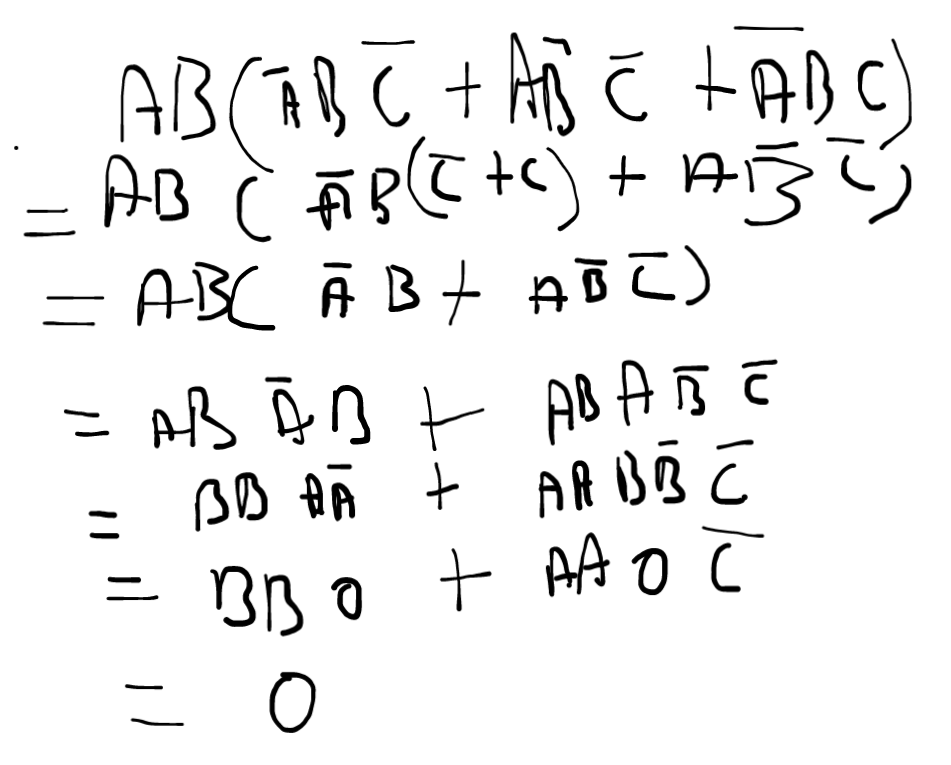 AB(A̅BC̅ + AB̅C̅ + A̅BC)
= AB(A̅B(C̅+C) + AB̅C̅)
= AB(A̅B + AB̅C̅)
= ABA̅B + ABAB̅C̅
= BBAA̅ + AABB̅C̅
= BB0 + AA0C̅
= 0